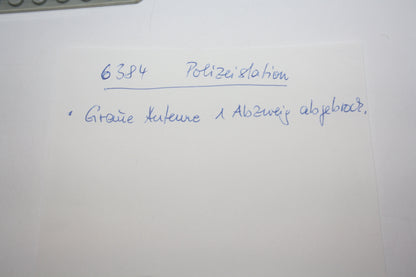 6384 Polizeistation
• Graue Antenne 1 Abzweig abgebroch.